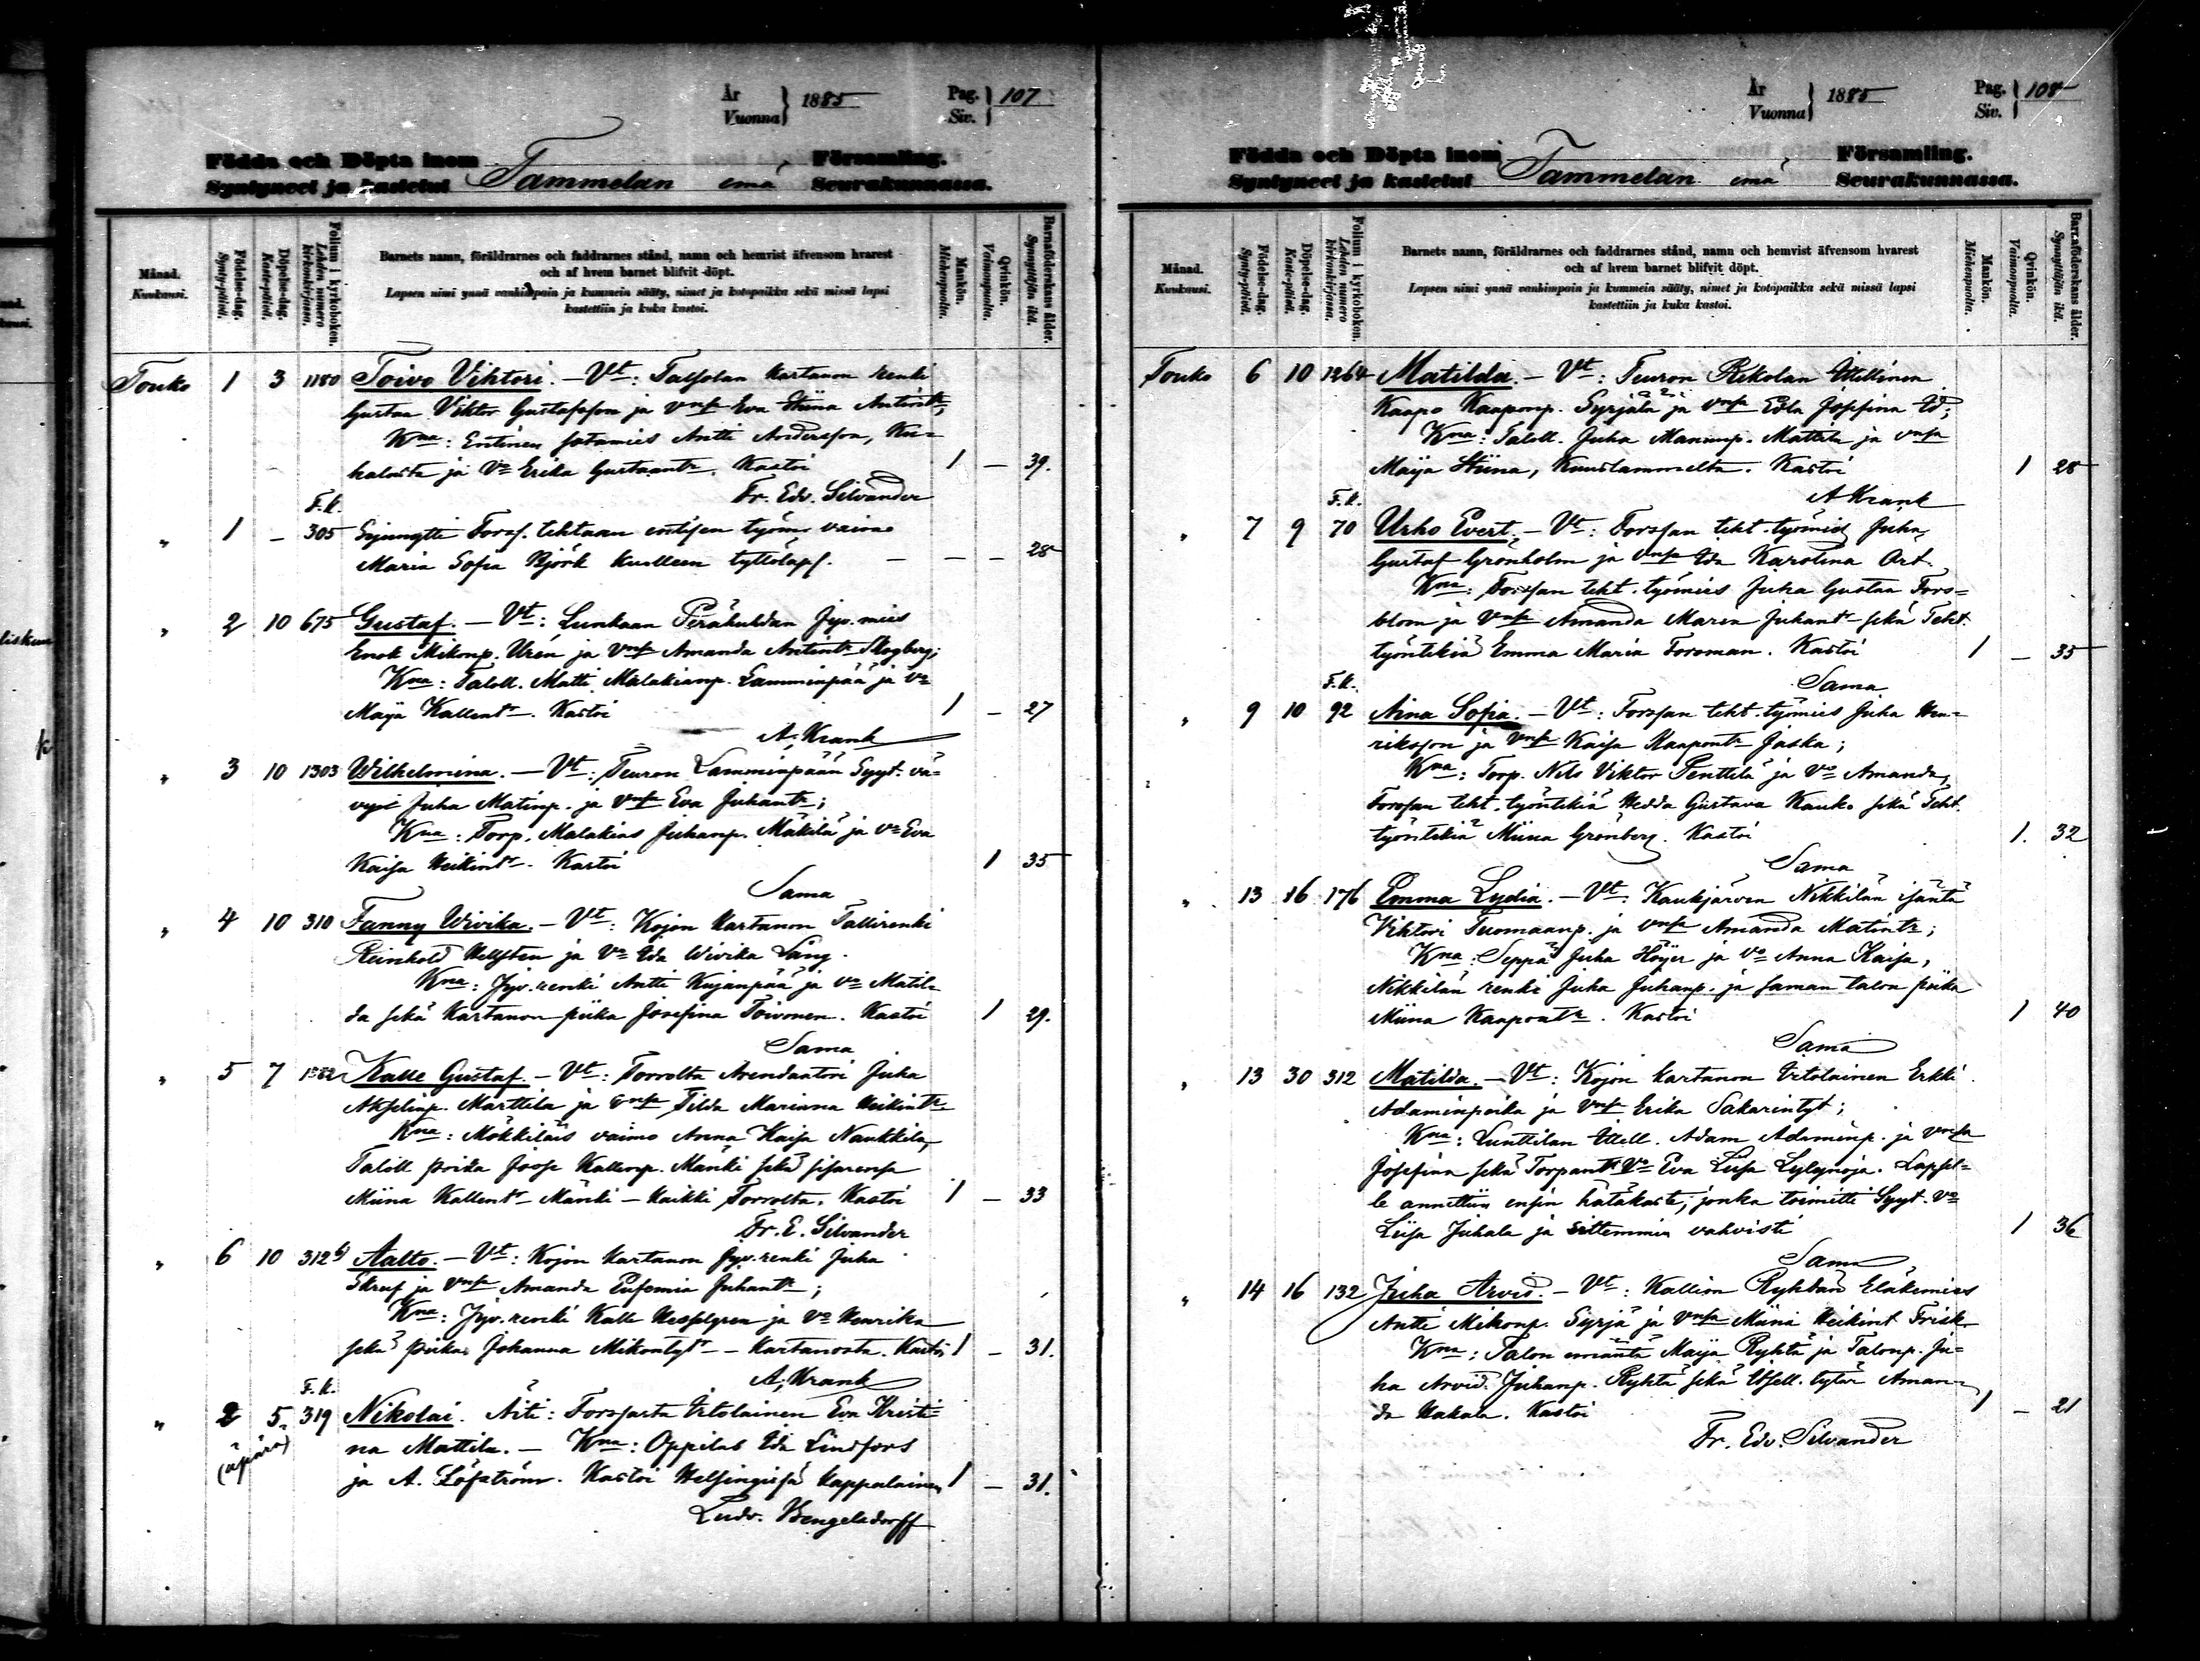 År
Vuonna } 1885
Pag.
Siv. } 107
Födda och Döpta inom Församling.
Syntyneet ja kastetut Tammelan emä Seurakunnassa.
Månad.
Kuukausi.
Födelse-dag.
Synty-päivä.
Döpelse-dag.
Kaste-päivä.
Folium i kyrkoboken.
Lehden numero kirkonkirjassa.
Barnets namn, föräldrarnes och faddrarnes stånd, namn och hemvist äfvensom hvarest
och af hvem barnet blifvit döpt.
Lapsen nimi ynnä vanhimpain ja kummein sääty, nimet ja kotopaikka sekä missä lapsi
kastettiin ja kuka kastoi.
Mankön.
Miehenpuolta.
Qvinkön.
Vaimonpuolta.
Barnaföderskans ålder.
Synnyttäjän ikä.
Touko 1 3 1180 Toivo Vihtori. — Vt: kartanon renki
Gustaa Viktor Gustafsson ja vmsa Eva Stiina Antint.,
Kna: Entinen sotamies Antti Andersson, Ku-
halasta ja Vo Erika Gustaant. Kastoi 1 — 39.
Fr. Edv. Silvander
F.k.
" 1 — 305 Synnytti Forss. tehtaan entisen työm. vaimo
Maria Sofia Björk kuolleen tyttölaps. — — — 28
" 2 10 675 Gustaf. — Vt: Lunkaan Perähuhdan Jyv. mies
Enok Mikonp. Urén ja vmsa Amanda Antint. Skogberg;
Kna: Taloll. Matti Malakianp. Lamminpää ja Vo
Maija Kallent. Kastoi 1 — 27
A. Krank
" 3 10 1303 Wilhelmina. — Vt: Teuron Lamminpään Syyt. vä-
vyn Juha Matinp. ja vmsa Eva Juhant.;
Kna: Torp. Malakias Juhanp. Mäkilä ja Vo Eva
Kaisa Heikint. Kastoi 1 35
Sama
" 4 10 310 Fanny Wivika. — Vt: Kojon Kartanon Tallirenki
Reinhold Hellsten ja Vo Ida Wivika Lång.
Kna: Jyv. renki Antti Kujanpää ja Vo Matil-
da sekä Kartanon piika Josefina Toivonen. Kastoi 1 29.
Sama
" 5 7 1382 Kalle Gustaf. — Vt: Torrolta Arendaatori Juha
Akselinp. Marttila ja vmsa Tilda Mariana Heikint.
Kna: Mökkiläis vaimo Anna Kaisa Naukkila,
Taloll poika Joose Kallenp. Mänki sekä sisarensa
Miina Kallent. Mänki — kaikki Torrolta. Kastoi 1 — 33
Fr. E. Silvander
" 6 10 312 b) Aalto. — Vt: Kojon kartanon Jyv. renki Juha
Skruf ja vmsa Amanda Eufemia Juhant.;
Kna: Jyv. renki Kalle Hesselgren ja Vo Henrika
sekä piika Johanna Mikontyt. — Kartanosta. Kastoi 1 — 31.
A. Krank
F.k.
" 2 5. 319 Nikolai. Äiti: Forssasta Irtolainen Eva Kristi-
(äpärä) na Mattila. — Kna: Oppilas Ida Lindfors
ja A. Löfström. Kastoi Helsingissä kappalainen 1 — 31.
Ludv. Bengelsdorff
År
Vuonna } 1885
Pag.
Siv. } 108
Födda och Döpta inom Församling.
Syntyneet ja kastetut Tammelan emä Seurakunnassa.
Månad.
Kuukausi.
Födelse-dag.
Synty-päivä.
Döpelse-dag.
Kaste-päivä.
Folium i kyrkoboken.
Lehden numero kirkonkirjassa.
Barnets namn, föräldrarnes och faddrarnes stånd, namn och hemvist äfvensom hvarest
och af hvem barnet blifvit döpt.
Lapsen nimi ynnä vanhimpain ja kummein sääty, nimet ja kotopaikka sekä missä lapsi
kastettiin ja kuka kastoi.
Mankön.
Miehenpuolta.
Qvinkön.
Vaimonpuolta.
Barnaföderskans ålder.
Synnyttäjän ikä.
Touko 6 10 1264 Matilda. — Vt: Teuron Rikolan Itsellinen
Kaapo Kaaponp. Syrjälä ja vmsa Edla Josefina Ed;
Kna: Taloll. Juha Mannup. Mattila ja vmsa
Maija Stiina, Kuuslammelta. Kastoi 1 28
A Krank
F.k.
" 7 9 70 Urho Evert. — Vt: Forssan teht. työmies Juha
Gustaf Grönholm ja vmsa Ida Karolina Ort.
Kna: Forssan teht. työmies Juha Gustaa Fors-
blom ja vmsa Amanda Maria Juhant. sekä Teht.
työntekiä Emma Maria Forsman. Kastoi 1 — 35
F.k. Sama
" 9 10 92 Aina Sofia. — Vt: Forssan teht. työmies Juha Hen-
riksson ja vmsa Kaisa Kaapont. Jaska;
Kna: Torp. Nils Viktor Penttilä ja Vo Amanda,
Forssan teht. työntekiä Hedda Gustava Kauko sekä Teht.
työntekiä Miina Grönberg. Kastoi 1. 32
Sama
" 13 16 176 Emma Lydia. — Vt: Kaukjärven Nikkilän isäntä
Vihtori Tuomaanp. ja vmsa Amanda Matint.;
Kna: Seppä Juha Höijer ja Vo Anna Kaisa,
Nikkilän renki Juha Juhanp. ja saman talon piika
Miina Kaapont. Kastoi 1 40
Sama
" 13 30 312 Matilda. — Vt: Kojon kartanon Irtolainen Erkki
Adaminpoika ja vmsa Erika Sakarintyt;
Kna: Lunttilan Itsell. Adam Adaminp. ja vmsa
Josefina sekä Torpant. Vo Eva Liisa Lylynoja. Lapsel-
le annettiin ensin hätäkaste, jonka toimitti Syyt. Vo
Liisa Juhala ja sittemmin vahvisti 1 36
Sama
" 14 16 132 Juha Arvid. — Vt: Kallion Ryhdän Eläkemies
Antti Mikonp. Syrjä ja vmsa Miina Heikint Frisk.
Kna: Talon emäntä Maija Ryhtä ja Talonp. Ju-
ha Arvid Juhanp. Ryhtä sekä Itsell. tytär Aman-
da Hakala. Kastoi 1 — 21
Fr. Edv. Silvander